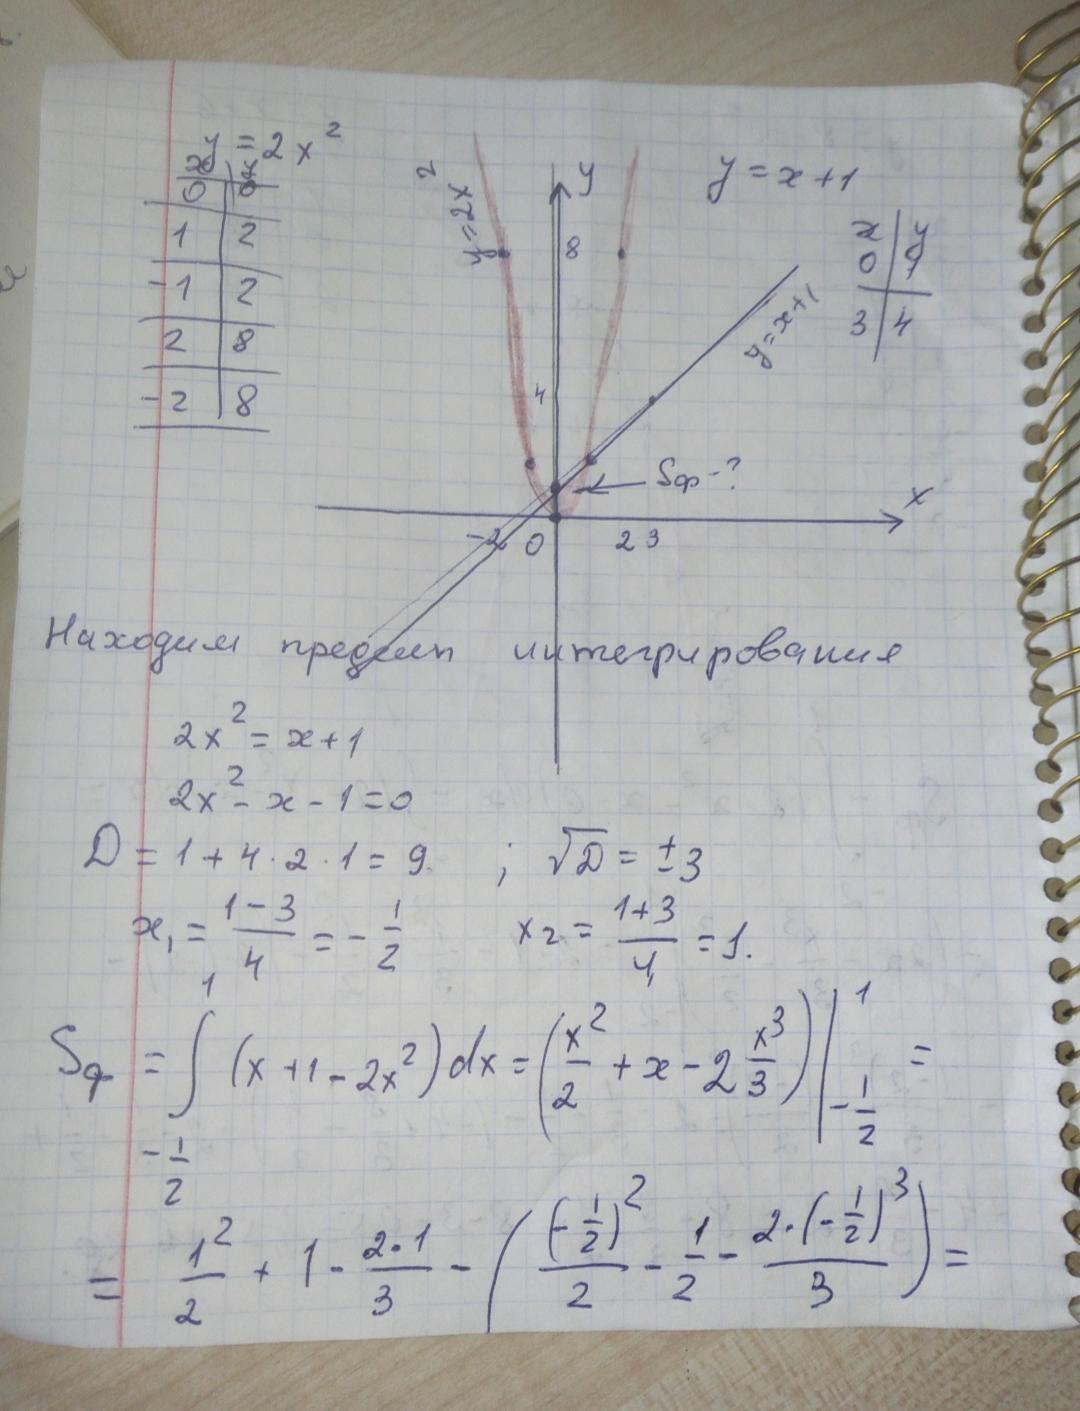 y = 2x²
x | y
0 | 0
1 | 2
-1 | 2
2 | 8
-2 | 8
y=2x²
y
8
4
y = x+1
x | y
0 | 1
3 | 4
y=x+1
Sф-?
x
-2 0 2 3
Находим пределы интегрирования
2x² = x+1
2x² - x - 1 = 0
D = 1 + 4·2·1 = 9. ; √D = ±3
x₁ = (1-3)/4 = -1/2 x₂ = (1+3)/4 = 1.
Sф = ∫_{-1/2}^{1} (x+1-2x²)dx = (x²/2 + x - 2 x³/3) |_{-1/2}^{1} =
= 1²/2 + 1 - 2·1/3 - ((-1/2)²/2 - 1/2 - 2·(-1/2)³/3) =